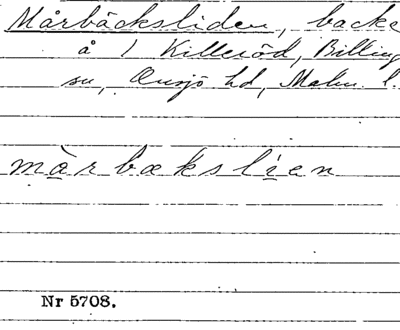 Mårbäcksliden, backe
å 1 Killeröd, Billing
sn, Onsjö hd, Malm. l.
màrbækslíen
Nr 5708.